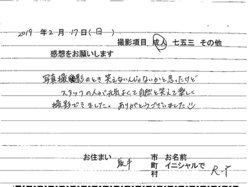 2019 年 2 月 17 日 ( 日 )
撮影項目 成人 七五三 その他
感想をお願いします
写真撮影のとき笑えないんじゃないかと思ったけど
スタッフの人がお話よくて自然と笑えて楽しく
撮影できました。ありがとうございました
お住まい 取手 市町村 お名前 イニシャルで R・T